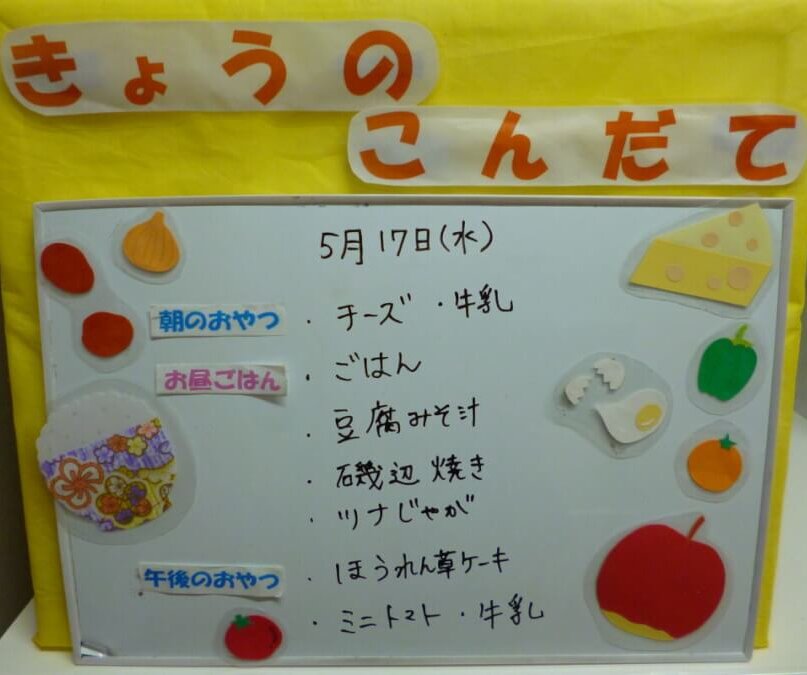 きょうの
こんだて
5月17日(水)
朝のおやつ ・チーズ ・牛乳
お昼ごはん ・ごはん
・豆腐みそ汁
・磯辺焼き
・ツナじゃが
午後のおやつ ・ほうれん草ケーキ
・ミニトマト・牛乳